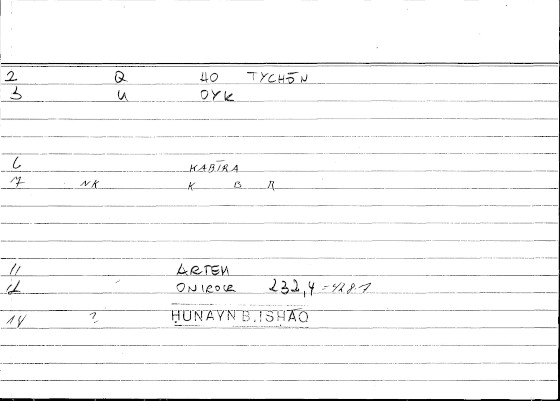 2 Q HO TYCHŌN
3 U OYK
6 KABĪRA
7 NK K B R
11 ARTEM
12 ONIROCR 232,4 = 428.1
14 ? ḤUNAYN B. ISḤĀQ